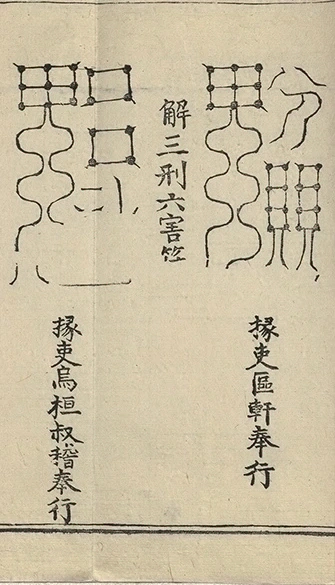 掾吏區軒奉行
解三刑六害
掾吏烏桓叔稽奉行